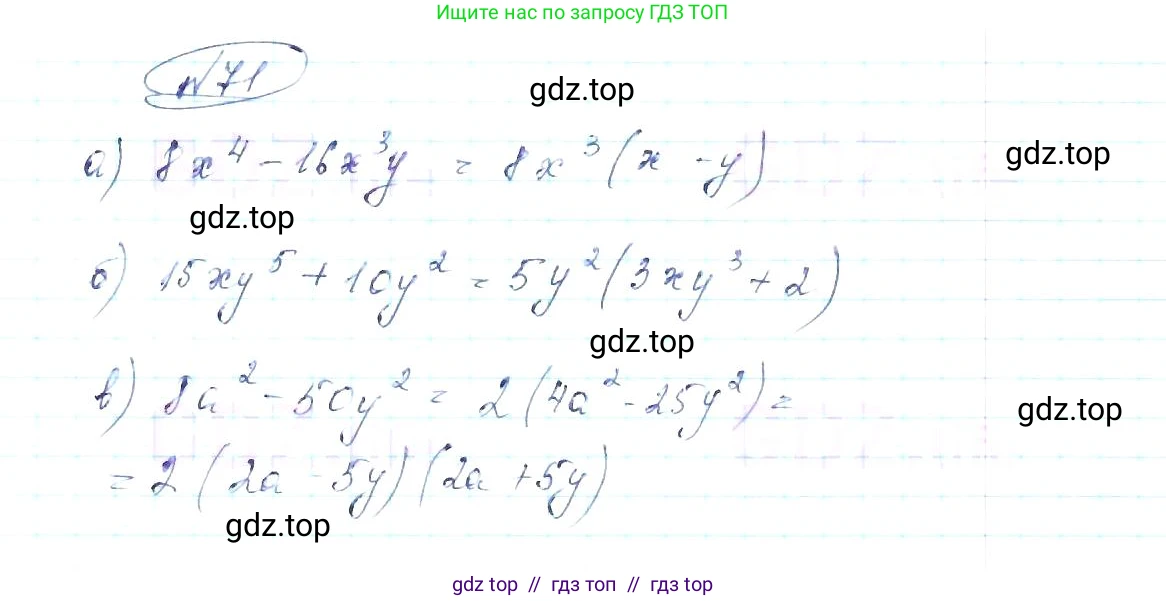 Ищите нас по запросу ГДЗ ТОП
№71
gdz.top
а) 8x⁴ - 16x³y = 8x³(x - y)
gdz.top
gdz.top
б) 15xy⁵ + 10y² = 5y²(3xy³ + 2)
gdz.top
в) 8a² - 50y² = 2(4a² - 25y²) =
gdz.top
= 2(2a - 5y)(2a + 5y)
gdz.top
gdz top // гдз топ // гдз top